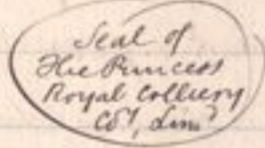 Seal of
The Princess
Royal Colliery
Coy, Limd